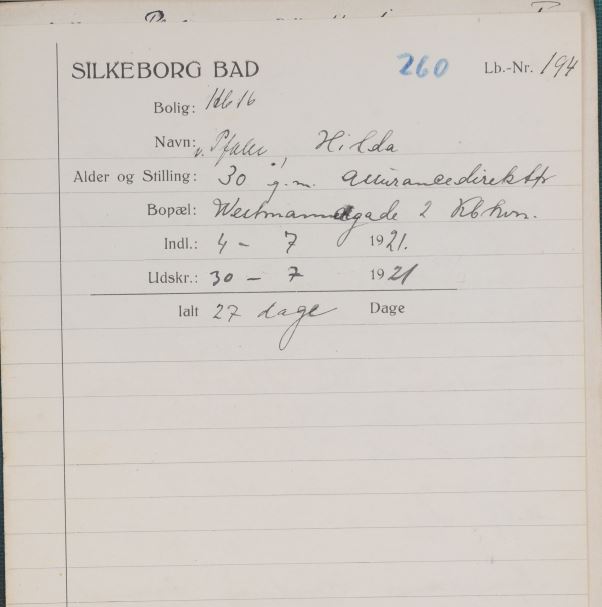 SILKEBORG BAD 260 Lb.-Nr. 194
Bolig: Kb 16
Navn: v. Pfaler, Hilda
Alder og Stilling: 30 g.m. assurancedirektør
Bopæl: Westmannagade 2 Kbhvn.
Indl.: 4 - 7 1921.
Udskr.: 30 - 7 1921
Ialt 27 dage Dage